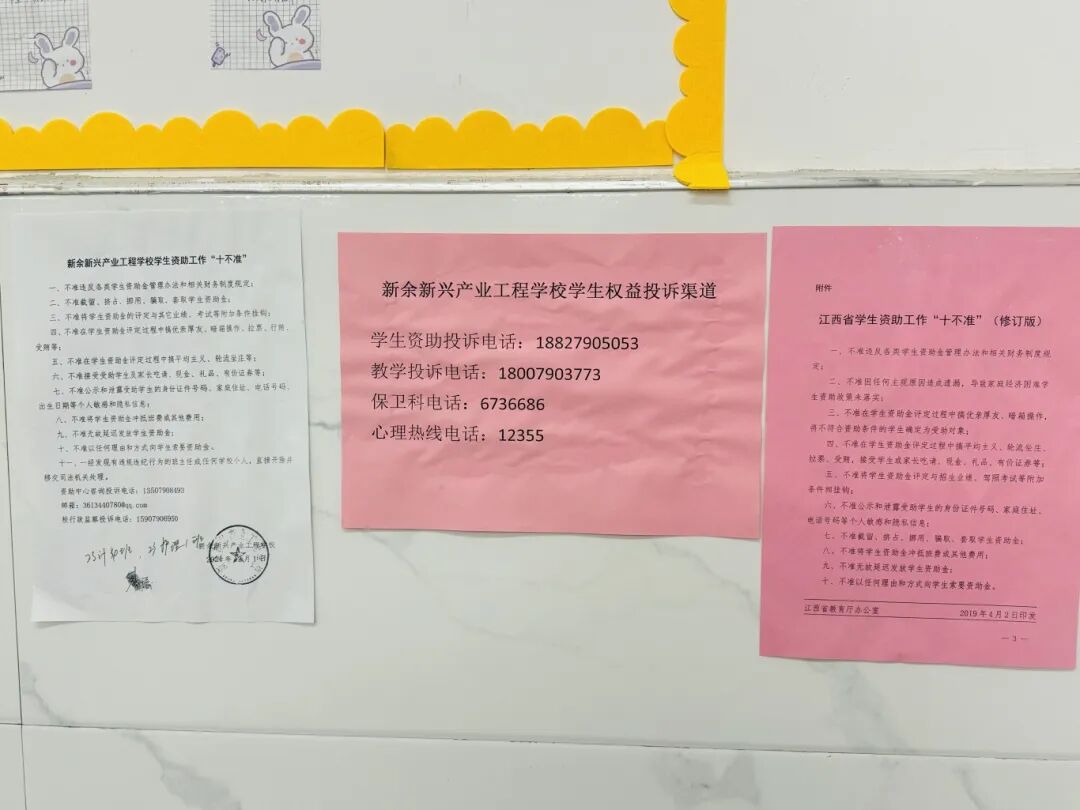 新余新兴产业工程学校学生资助工作“十不准”
一、不准违反各类学生资助金管理办法和相关财务制度规定；
二、不准截留、挤占、挪用、骗取、套取学生资助金；
三、不准将学生资助金的评定与其它业绩、考试等附加条件挂钩；
四、不准在学生资助金评定过程中搞优亲厚友、暗箱操作、拉票、行贿、
受贿等；
五、不准在学生资助金评定过程中搞平均主义、轮流坐庄等；
六、不准接受受助学生及家长吃请、现金、礼品、有价证券等；
七、不准公示和泄露受助学生的身份证件号码、家庭住址、电话号码、
出生日期等个人敏感和隐私信息；
八、不准将学生资助金冲抵班费或其他费用；
九、不准无故延迟发放学生资助金；
十、不准以任何理由和方式向学生索要资助金。
十一、一经发现有违规违纪行为的班主任或任何学校个人，直接开除并
移交司法机关处理。
资助中心咨询投诉电话：13507908493
邮箱：3613440780@qq.com
校行政监察投诉电话：15907906950
新余新兴产业工程学校
新余新兴产业工程学校学生权益投诉渠道
学生资助投诉电话：18827905053
教学投诉电话：18007903773
保卫科电话：6736686
心理热线电话：12355
附件
江西省学生资助工作“十不准”（修订版）
一、不准违反各类学生资助金管理办法和相关财务制度规
定；
二、不准因任何主观原因造成遗漏，导致家庭经济困难学
生资助政策未落实；
三、不准在学生资助金评定过程中搞优亲厚友、暗箱操作，
将不符合资助条件的学生确定为受助对象；
四、不准在学生资助金评定过程中搞平均主义、轮流坐庄、
拉票、受贿，接受学生或家长吃请、现金、礼品、有价证券等；
五、不准将学生资助金评定与招生业绩、驾照考试等附加
条件相挂钩；
六、不准公示和泄露受助学生的身份证件号码、家庭住址、
电话号码等个人敏感和隐私信息；
七、不准截留、挤占、挪用、骗取、套取学生资助金；
八、不准将学生资助金冲抵班费或其他费用；
九、不准无故延迟发放学生资助金；
十、不准以任何理由和方式向学生索要资助金。
江西省教育厅办公室 2019年4月2日印发
— 3 —